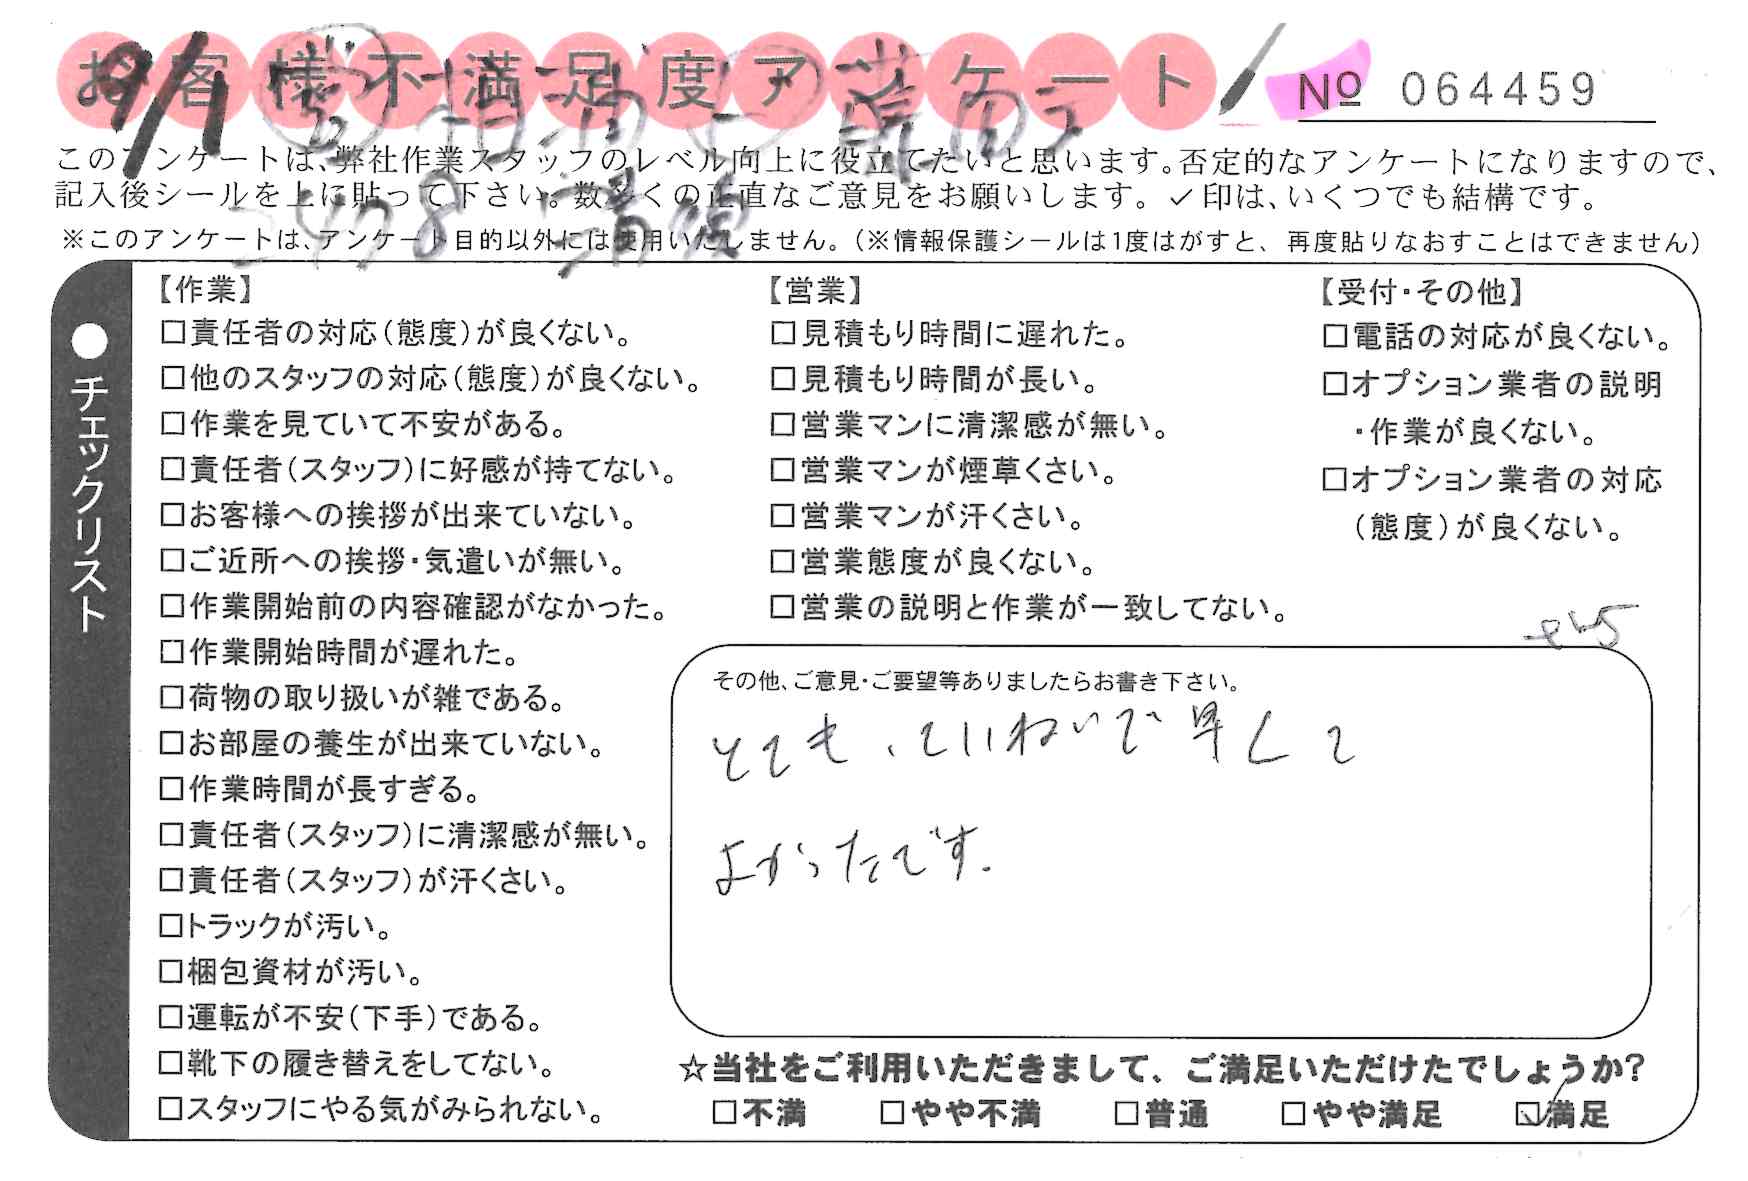 お客様不満足度アンケート
№ 064459
9/1
このアンケートは、弊社作業スタッフのレベル向上に役立てたいと思います。否定的なアンケートになりますので、
記入後シールを上に貼って下さい。数多くの正直なご意見をお願いします。✓印は、いくつでも結構です。
※このアンケートは、アンケート目的以外には使用いたしません。（※情報保護シールは1度はがすと、再度貼りなおすことはできません）
●チェックリスト
【作業】
□責任者の対応（態度）が良くない。
□他のスタッフの対応（態度）が良くない。
□作業を見ていて不安がある。
□責任者（スタッフ）に好感が持てない。
□お客様への挨拶が出来ていない。
□ご近所への挨拶・気遣いが無い。
□作業開始前の内容確認がなかった。
□作業開始時間が遅れた。
□荷物の取り扱いが雑である。
□お部屋の養生が出来ていない。
□作業時間が長すぎる。
□責任者（スタッフ）に清潔感が無い。
□責任者（スタッフ）が汗くさい。
□トラックが汚い。
□梱包資材が汚い。
□運転が不安（下手）である。
□靴下の履き替えをしてない。
□スタッフにやる気がみられない。
【営業】
□見積もり時間に遅れた。
□見積もり時間が長い。
□営業マンに清潔感が無い。
□営業マンが煙草くさい。
□営業マンが汗くさい。
□営業態度が良くない。
□営業の説明と作業が一致してない。
【受付・その他】
□電話の対応が良くない。
□オプション業者の説明
・作業が良くない。
□オプション業者の対応
（態度）が良くない。
その他、ご意見・ご要望等ありましたらお書き下さい。
とても、ていねいで早くて
よかったです.
☆当社をご利用いただきまして、ご満足いただけたでしょうか?
□不満 □やや不満 □普通 □やや満足 ☑満足